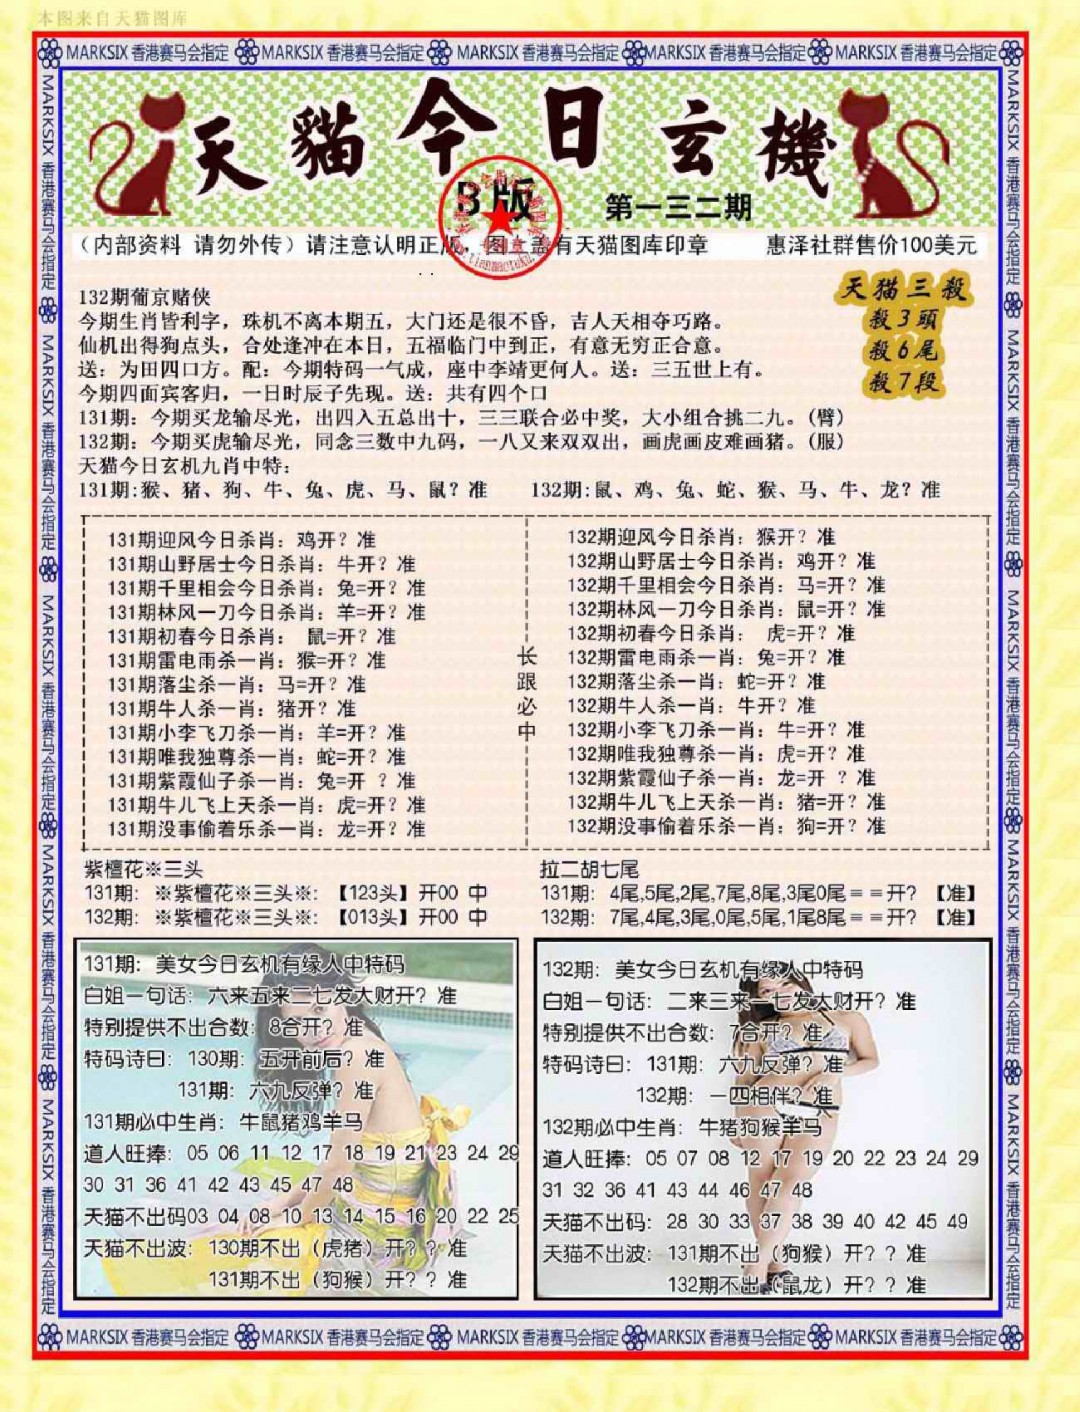 本图来自天猫图库
MARKSIX 香港赛马会指定 MARKSIX 香港赛马会指定 MARKSIX 香港赛马会指定 MARKSIX 香港赛马会指定 MARKSIX 香港赛马会指定
天貓今日玄機
B版
第一三二期
（内部资料 请勿外传）请注意认明正版，图上盖有天猫图库印章 惠泽社群售价100美元
天猫三殺
殺3頭
殺6尾
殺7段
132期葡京赌侠
今期生肖皆利字，珠机不离本期五，大门还是很不昏，吉人天相夺巧路。
仙机出得狗点头，合处逢冲在本日，五福临门中到正，有意无穷正合意。
送：为田四口方。配：今期特码一气成，座中李靖更何人。送：三五世上有。
今期四面宾客归，一日时辰子先现。送：共有四个口
131期：今期买龙输尽光，出四入五总出十，三三联合必中奖，大小组合挑二九。(臂)
132期：今期买虎输尽光，同念三数中九码，一八又来双双出，画虎画皮难画猪。(服)
天猫今日玄机九肖中特：
131期:猴、猪、狗、牛、兔、虎、马、鼠？准 132期:鼠、鸡、兔、蛇、猴、马、牛、龙？准
131期迎风今日杀肖：鸡开？准
131期山野居士今日杀肖：牛开？准
131期千里相会今日杀肖：兔=开？准
131期林风一刀今日杀肖：羊=开？准
131期初春今日杀肖： 鼠=开？准
131期雷电雨杀一肖：猴=开？准
131期落尘杀一肖：马=开？准
131期牛人杀一肖：猪开？准
131期小李飞刀杀一肖：羊=开？准
131期唯我独尊杀一肖：蛇=开？准
131期紫霞仙子杀一肖：兔=开 ？准
131期牛儿飞上天杀一肖：虎=开？准
131期没事偷着乐杀一肖：龙=开？准
长跟必中
132期迎风今日杀肖：猴开？准
132期山野居士今日杀肖：鸡开？准
132期千里相会今日杀肖：马=开？准
132期林风一刀今日杀肖：鼠=开？准
132期初春今日杀肖： 虎=开？准
132期雷电雨杀一肖：兔=开？准
132期落尘杀一肖：蛇=开？准
132期牛人杀一肖：牛开？准
132期小李飞刀杀一肖：牛=开？准
132期唯我独尊杀一肖：虎=开？准
132期紫霞仙子杀一肖：龙=开 ？准
132期牛儿飞上天杀一肖：猪=开？准
132期没事偷着乐杀一肖：狗=开？准
紫檀花※三头
131期：※紫檀花※三头※：【123头】开00 中
132期：※紫檀花※三头※：【013头】开00 中
拉二胡七尾
131期：4尾,5尾,2尾,7尾,8尾,3尾0尾＝＝开？【准】
132期：7尾,4尾,3尾,0尾,5尾,1尾8尾＝＝开？【准】
131期：美女今日玄机有缘人中特码
白姐一句话：六来五来二七发大财开？准
特别提供不出合数：8合开？准
特码诗曰：130期：五开前后？准
131期：六九反弹？准
131期必中生肖：牛鼠猪鸡羊马
道人旺捧：05 06 11 12 17 18 19 21 23 24 29
30 31 36 41 42 43 45 47 48
天猫不出码03 04 08 10 13 14 15 16 20 22 25
天猫不出波：130期不出（虎猪）开？？准
131期不出（狗猴）开？？准
132期：美女今日玄机有缘人中特码
白姐一句话：二来三来一七发大财开？准
特别提供不出合数：7合开？准
特码诗曰：131期：六九反弹？准
132期：一四相伴？准
132期必中生肖：牛猪狗猴羊马
道人旺捧：05 07 08 12 17 19 20 22 23 24 29
31 32 36 41 43 44 46 47 48
天猫不出码：28 30 33 37 38 39 40 42 45 49
天猫不出波：131期不出（狗猴）开？？准
132期不出（鼠龙）开？？准
MARKSIX 香港赛马会指定 MARKSIX 香港赛马会指定 MARKSIX 香港赛马会指定 MARKSIX 香港赛马会指定 MARKSIX 香港赛马会指定